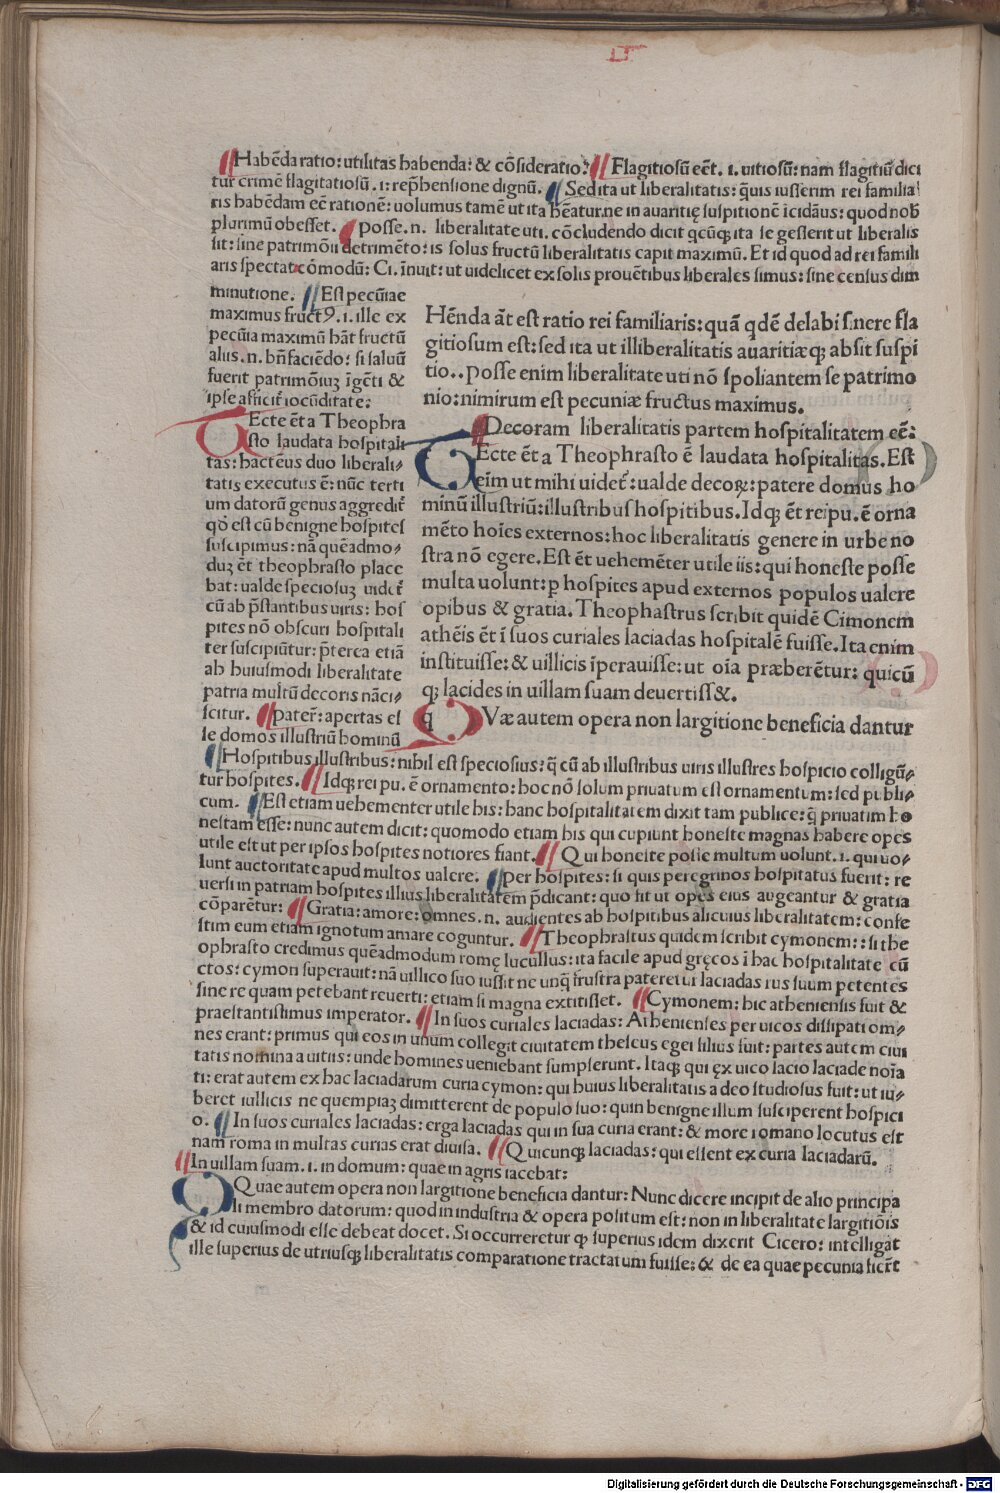 II
¶Habēda ratio: utilitas habenda: & cōsideratio: ¶Flagitiosū eēt .i. uitiosū: nam flagitiū dici
tur crimē flagitatiosū .i: rep̄hensione dignū. ¶Sed ita ut liberalitatis: q̄uis iusserim rei familia
ris habēdam eē rationē: uolumus tamē ut ita bēatur ne in auaritię suspitionē icidāus: quod nob̄
plurimū obesset. ¶posse .n. liberalitate uti. cōcludendo dicit q̄cūq; ita se gesserit ut liberalis
sit: sine patrimōii detrimēto: is solus fructū liberalitatis capit maximū. Et id quod ad rei famili
aris spectat cōmodū: Ci. īnuit: ut uidelicet ex solis prouētibus liberales simus: sine census dim
minutione. ¶Est pecūiae
maximus fruct9 .i. ille ex
pecūia maximū hāt fructū
aliis .n. bn̄faciēdo: si saluū
fuerit patrimōiuȝ īgēti &
ipse afficit̄ iocūditate:
TEcte ēt a Theophra
sto laudata hospitali
tas: hactēus duo liberali⸗
tatis executus ē: nūc terti
um datorū genus aggredit̄
qd̄ est cū benigne hospites
suscipimus: nā quēadmo⸗
duȝ ēt theophrasto place
bat: ualde speciosuȝ uidet̄
cū ab p̄stantibus uiris: hos
pites nō obscuri hospitali
ter suscipiūtur: p̄terea etiā
ab huiusmodi liberalitate
patria multū decoris nāci⸗
scitur. ¶pater̄: apertas es
se domos illustriū hominū
Hēnda āt est ratio rei familiaris: quā qdē delabi sinere fla
gitiosum est: sed ita ut illiberalitatis auaritiæq; absit suspi
tio.. posse enim liberalitate uti nō spoliantem se patrimo
nio: nimirum est pecuniæ fructus maximus.
¶Decoram liberalitatis partem hospitalitatem eē:
TEcte ēt a Theophrasto ē laudata hospitalitas. Est
eīm ut mihi uidet̄: ualde decoꝝ: patere domus ho
minū illustriū: illustribus hospitibus. Idq; ēt reipu. ē orna
mēto hoīes externos: hoc liberalitatis genere in urbe no
stra nō egere. Est ēt uehemēter utile iis: qui honeste posse
multa uolunt: ꝑ hospites apud externos populos ualere
opibus & gratia. Theophastrus scribit quidē Cimonem
athēis ēt ī suos curiales laciadas hospitalē fuisse. Ita enim
instituisse: & uillicis īperauisse: ut oīa præberētur: quicū
q; lacides in uillam suam deuertiss&.
qVæ autem opera non largitione beneficia dantur
¶Hospitibus illustribus: nihil est speciosius: q̄ cū ab illustribus uiris illustres hospicio colligū⸗
tur hospites. ¶Idq; rei pu. ē ornamento: hoc nō solum priuatum est ornamentum: sed publi⸗
cum. ¶Est etiam uehementer utile his: hanc hospitalitatem dixit tam publice: q̄ priuatim ho
nestam esse: nunc autem dicit: quomodo etiam his qui cupiunt honeste magnas habere opes
utile est ut per ipsos hospites notiores fiant. ¶Qui honeste posse multum uolunt .i. qui uo⸗
lunt auctoritate apud multos ualere. ¶per hospites: si quis peregrinos hospitatus fuerit: re
uersi in patriam hospites illius liberalitatem p̄dicant: quo fit ut opes eius augeantur & gratia
cōparētur: ¶Gratia: amore: omnes .n. audientes ab hospitibus alicuius liberalitatem: confe
stim eum etiam ignotum amare coguntur. ¶Theophrastus quidem scribit cymonem: : si the
ophrasto credimus quēadmodum romę lucullus: ita facile apud gręcos ī hac hospitalitate cū
ctos: cymon superauit: nā uillico suo iussit ne unq̄ frustra pateretur laciadas ius suum petentes
sine re quam petebant reuerti: etiam si magna extitisset. ¶Cymonem: hic atheniensis fuit &
praestantissimus imperator. ¶In suos curiales laciadas: Athenienses per uicos dissipati om⸗
nes erant: primus qui eos in unum collegit ciuitatem theseus egei filius fuit: partes autem ciui
tatis nomina a uitiis: unde homines ueniebant sumpserunt. Itaq; qui ęx uico lacio laciade noīa
ti: erat autem ex hac laciadarum curia cymon: qui huius liberalitatis adeo studiosus fuit: ut iu⸗
beret iullicis ne quempiaȝ dimitterent de populo suo: quin benigne illum susciperent hospici
o. ¶In suos curiales laciadas: erga laciadas qui in sua curia erant: & more romano locutus est
nam roma in multas curias erat diuisa. ¶Quicunq; laciadas: qui essent ex curia laciadarū.
¶In uillam suam .i. in domum: quae in agris iacebat:
QQuae autem opera non largitione beneficia dantur: Nunc dicere incipit de alio principa
li membro datorum: quod in industria & opera positum est: non in liberalitate largitiōis
& id cuiusmodi esse debeat docet. Si occurreretur ꝙ superius idem dixerit Cicero: intelligat
ille superius de utriusq; liberalitatis comparatione tractatum fuisse: & de ea quae pecunia fieret
Digitalisierung gefördert durch die Deutsche Forschungsgemeinschaft - DFG